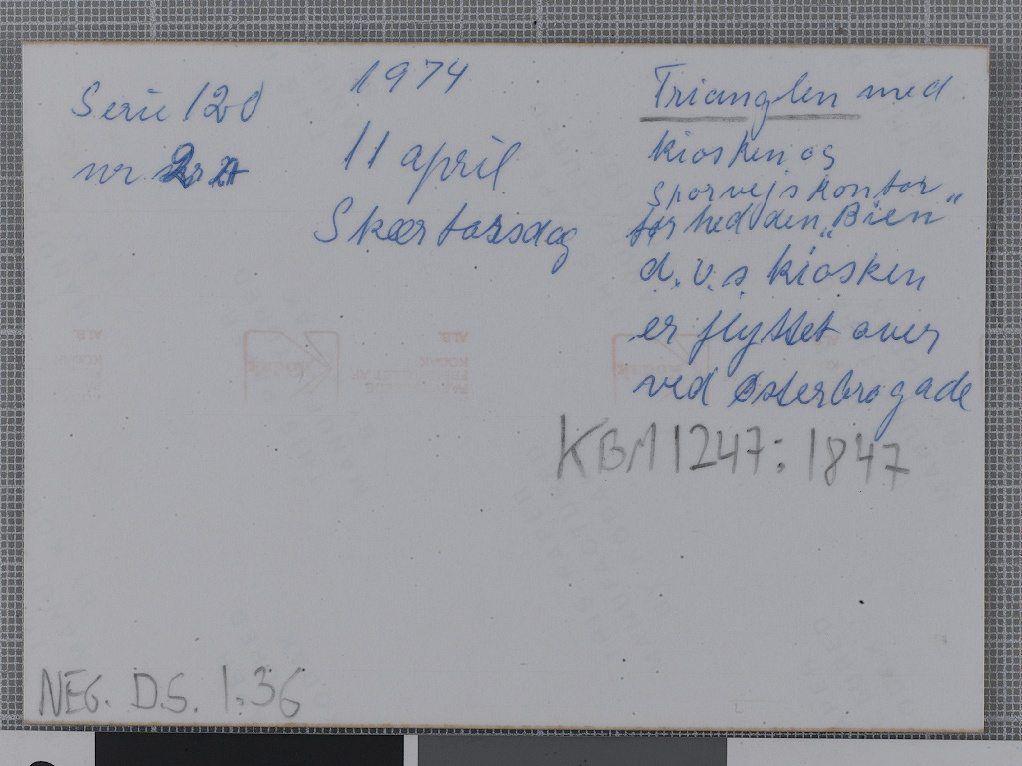 Serie 120
nr
1974
11 april
Skærtorsdag
Trianglen med
kiosken og
sporvejskontor
før hed den „Bien"
d.v.s kiosken
er flyttet over
ved Østerbrogade
KBM 1247: 1847
NEG. D.S. 1.36